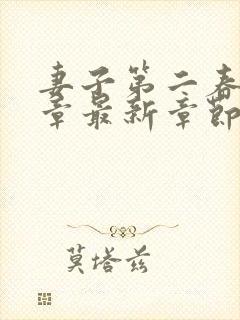 妻子第二春
章最新章节
莫塔兹